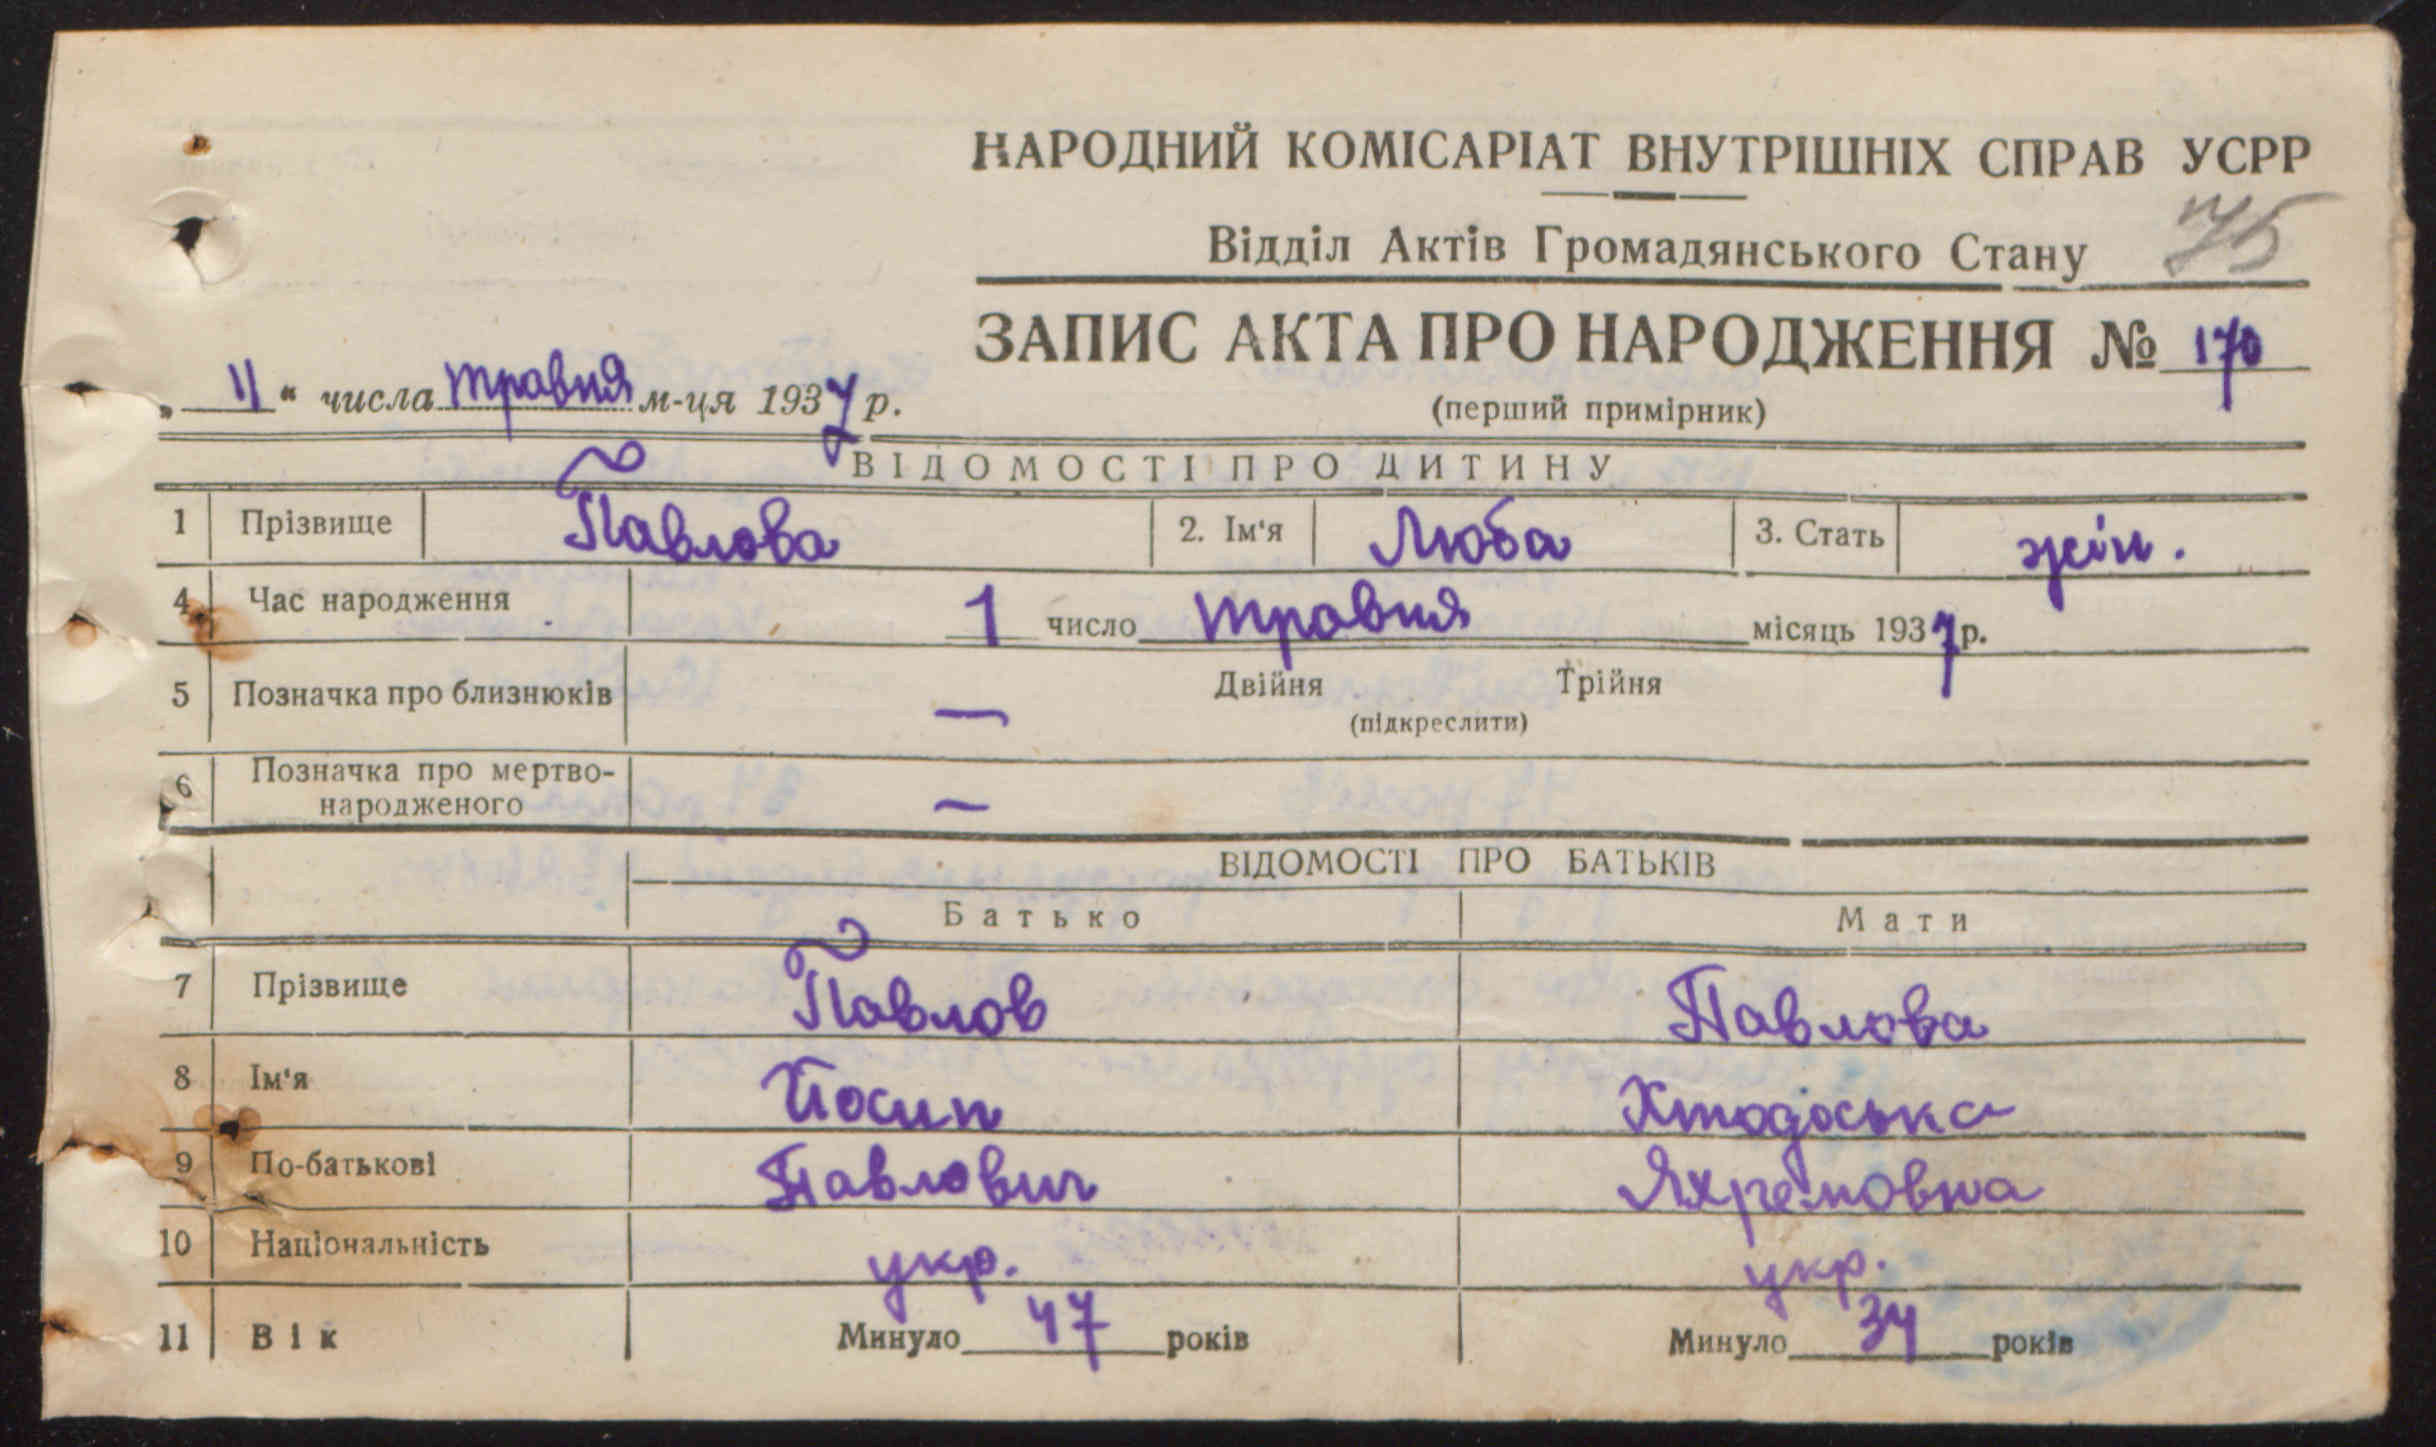 НАРОДНИЙ КОМІСАРІАТ ВНУТРІШНІХ СПРАВ УСРР
Відділ Актів Громадянського Стану 75
ЗАПИС АКТА ПРО НАРОДЖЕННЯ № 170
„ 11 “ числа травня м-ця 1937 р.
(перший примірник)
ВІДОМОСТІ ПРО ДИТИНУ
1 Прізвище Павлова 2. Ім'я Люба 3. Стать жін.
4 Час народження 1 число травня місяць 1937 р.
5 Позначка про близнюків — Двійня Трійня
(підкреслити)
6 Позначка про мертво-
народженого —
ВІДОМОСТІ ПРО БАТЬКІВ
Батько Мати
7 Прізвище Павлов Павлова
8 Ім'я Йосип Хтодоська
9 По-батькові Павлович Яхремовна
10 Національність укр. укр.
11 Вік Минуло 47 років Минуло 34 років